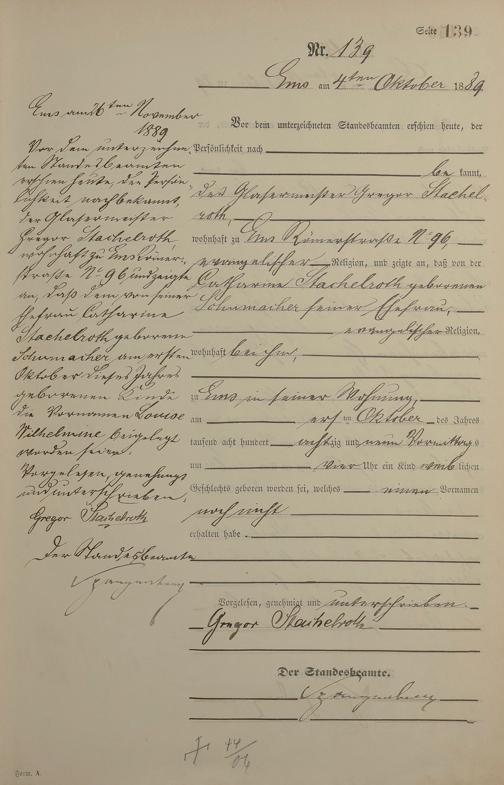 Seite 139
Nr. 139
Ems am 4ten Oktober 1889
Vor dem unterzeichneten Standesbeamten erschien heute, der
Persönlichkeit nach
be kannt,
der Glasermeister Gregor Stachel-
roth,
wohnhaft zu Ems Römerstraße No 96,
evangelischer Religion, und zeigte an, daß von der
Catharine Stachelroth geborenen
Schumacher seiner Ehefrau,
evangelischer Religion,
wohnhaft bei ihm,
zu Ems in seiner Wohnung,
am ersten Oktober des Jahres
tausend acht hundert achtzig und neun Vormittags
um vier Uhr ein Kind weib lichen
Geschlechts geboren worden sei, welches einen Vornamen
noch nicht
erhalten habe.
Vorgelesen, genehmigt und unterschrieben
Gregor Stachelroth
Der Standesbeamte.
Spangenberg
Ems am 26ten November
1889
Vor dem unterzeichne-
ten Standesbeamten
erschien heute, der Persön-
lichkeit nach bekannt,
der Glasermeister
Gregor Stachelroth,
wohnhaft zu Ems Römer-
straße No 96, und zeigte
an, daß dem von seiner
Ehefrau Catharine
Stachelroth geborene
Schumacher am ersten
Oktober dieses Jahres
geborenen Kinde
die Vornamen Louise
Wilhelmine beigelegt
worden seien.
Vorgelesen, genehmigt
und unterschrieben.
Gregor Stachelroth
Der Standesbeamte
Spangenberg
44/04
Form. A.